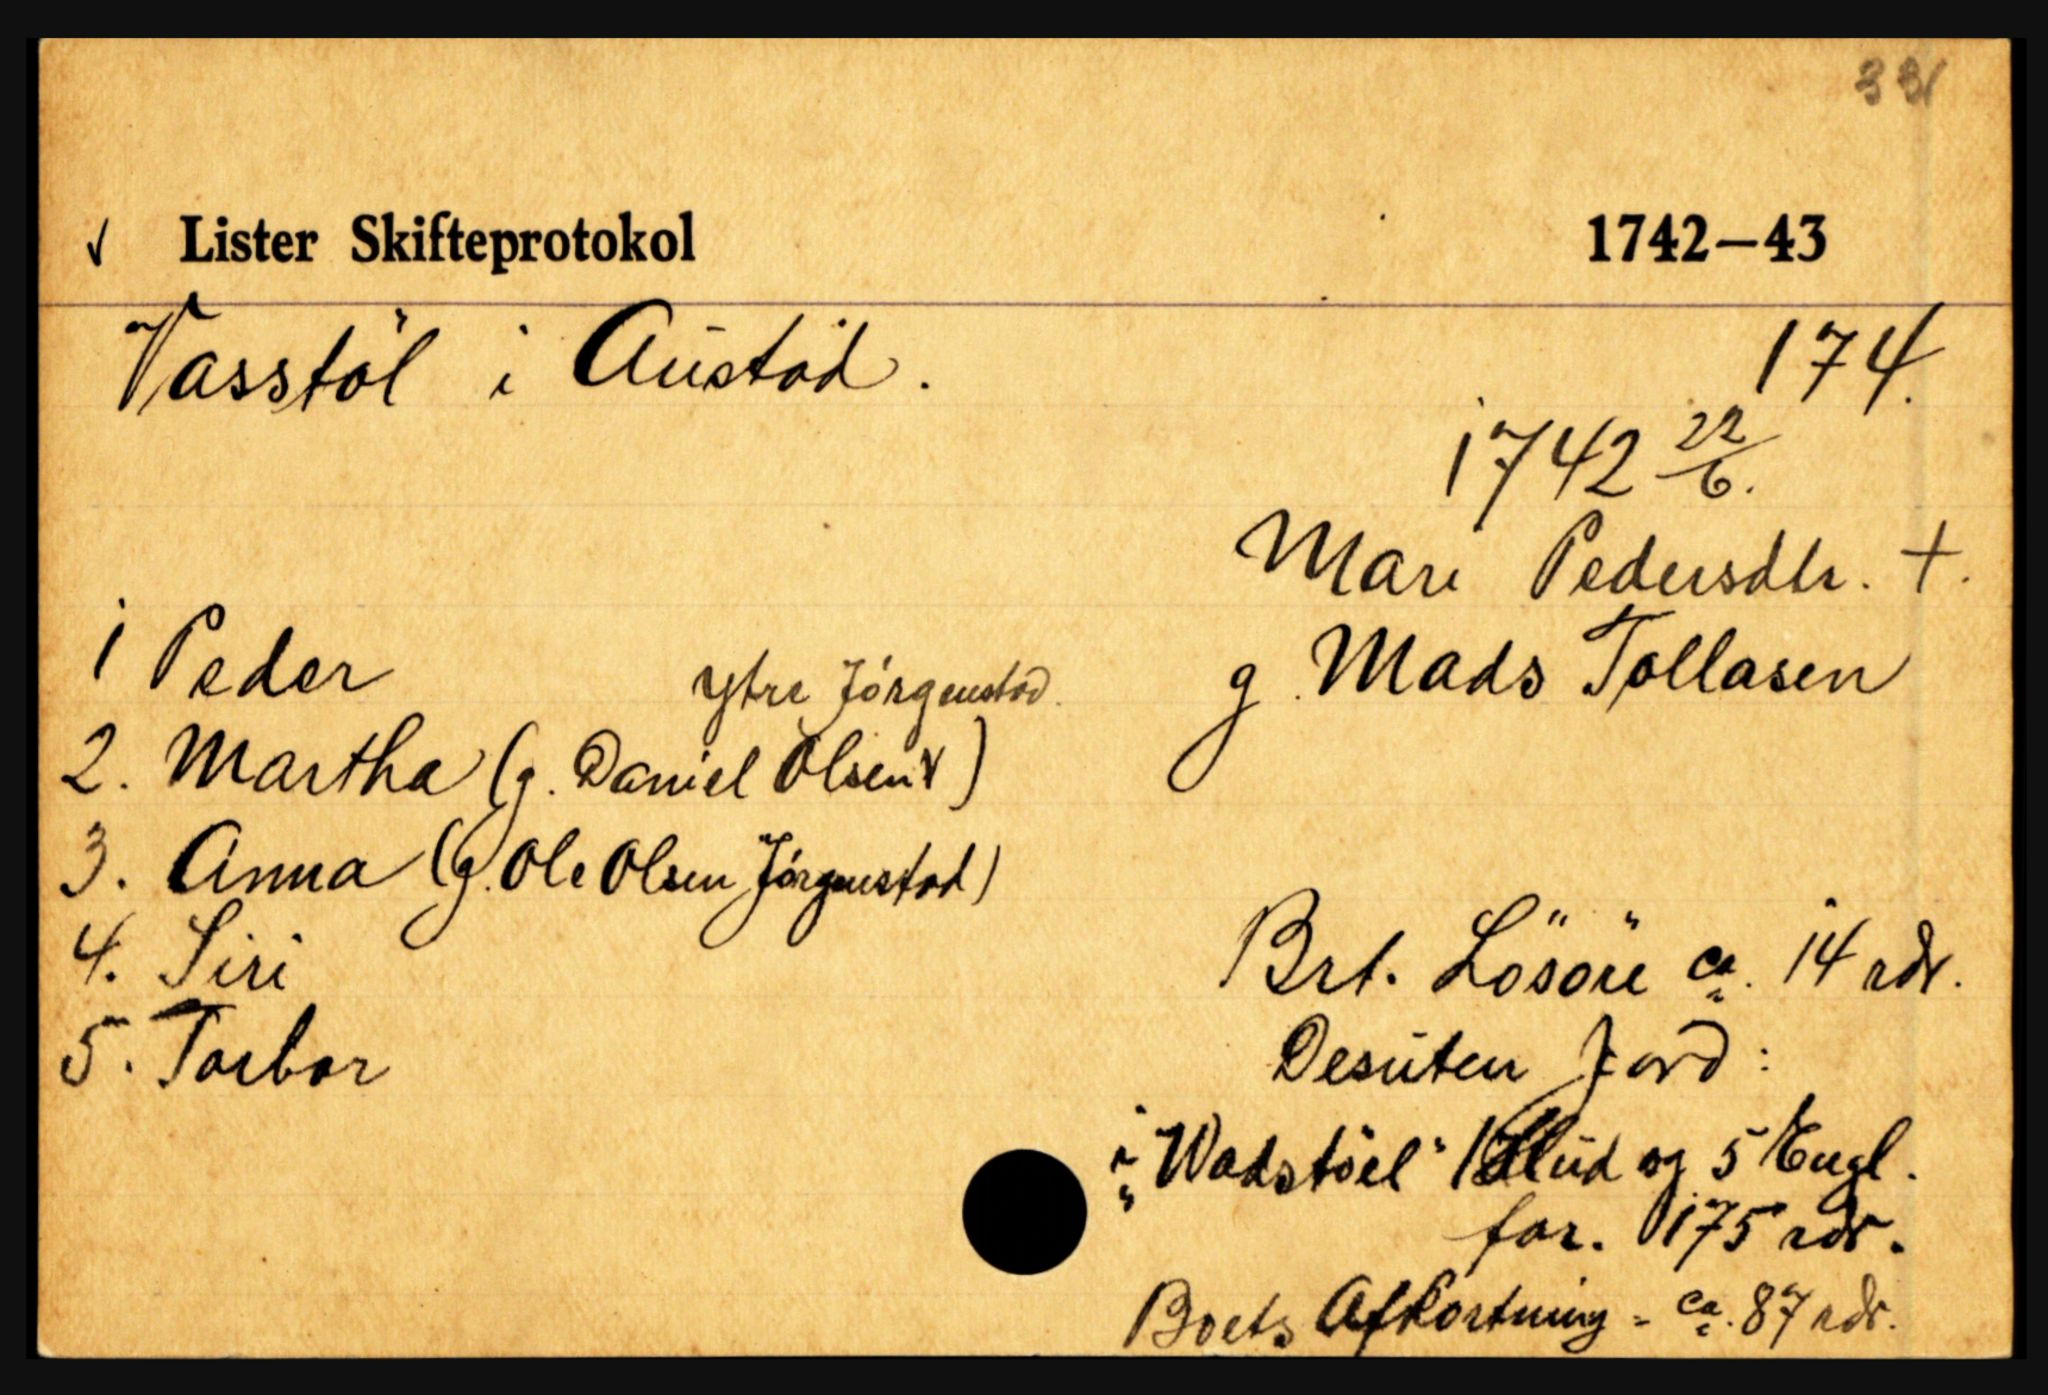 331
✓ Lister Skifteprotokol 1742–43
Vasstöl i Austad. 174.
1742 22/6.
Mari Pedersdtr. +.
g. Mads Tollasen
1 Peder
Ytre Jórgenstad.
2. Martha (g. Daniel Olsen)
3. Anna (g. Ole Olsen Jórgenstad)
4. Siri
5. Torbor
Brt. Lösöre ca. 14 rdr.
Desuten Jord:
i "Wadstöel" 1 Hud og 5 Engl.
for. 175 rdr.
Boets Afkortning = ca. 87 rdr.